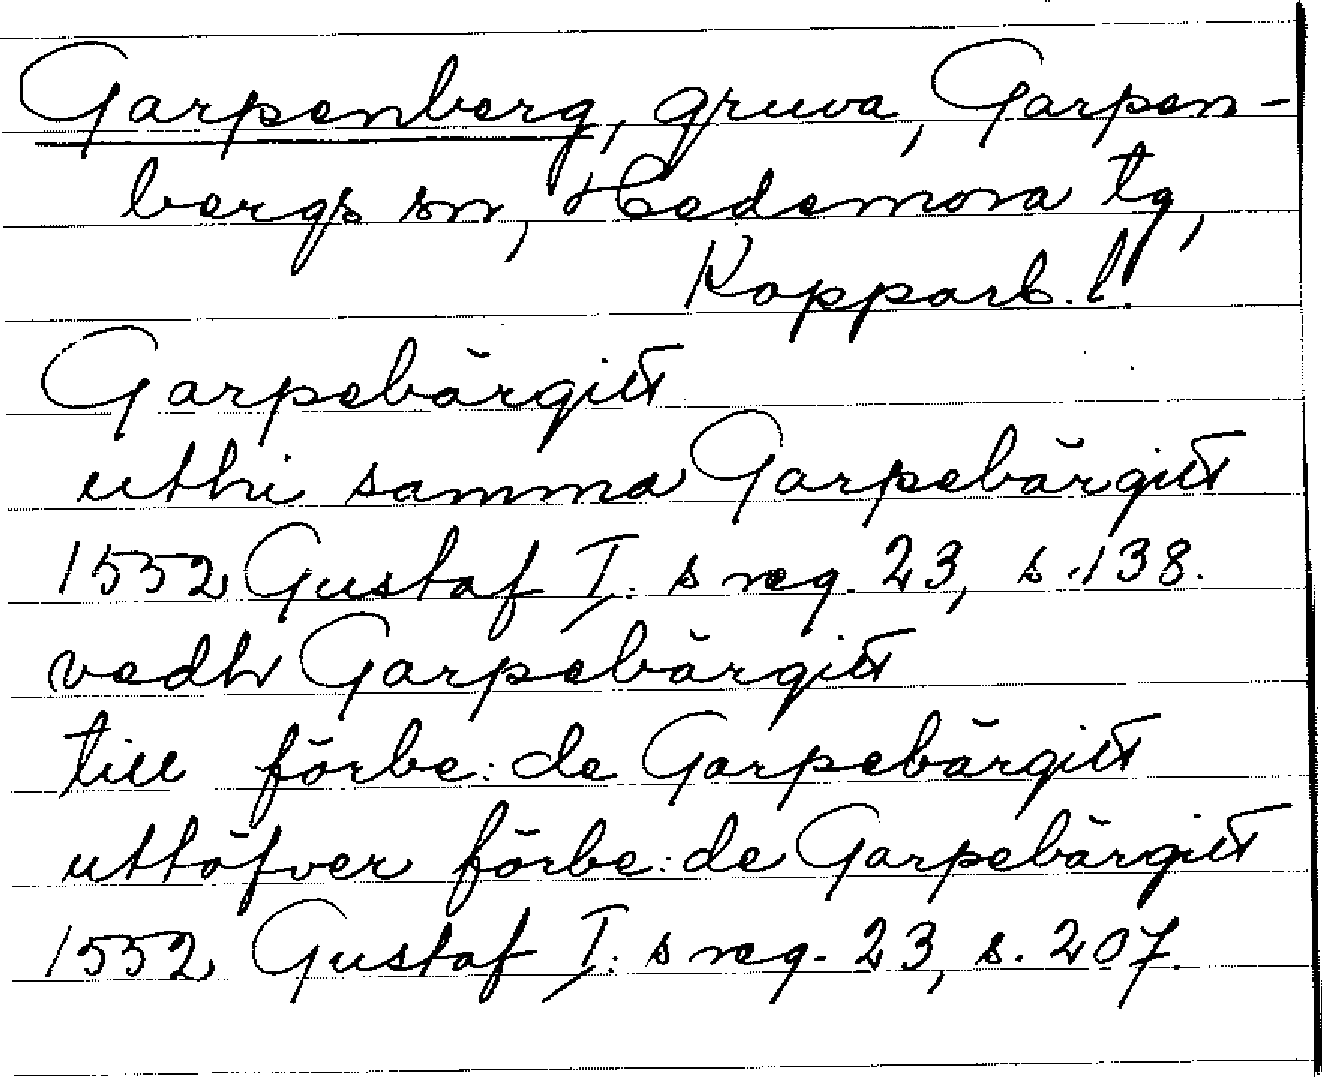 Garpenberg, gruva, Garpen-
bergs sn, Hedemora tg,
Kopparb. l.
Garpebärgitt
utthi samma Garpebärgitt
1552 Gustaf I. s reg. 23, s. 138.
vedh Garpebärgitt
till förbe:de Garpebärgitt
uttöfver förbe:de Garpebärgitt
1552 Gustaf I. s reg. 23, s. 207.